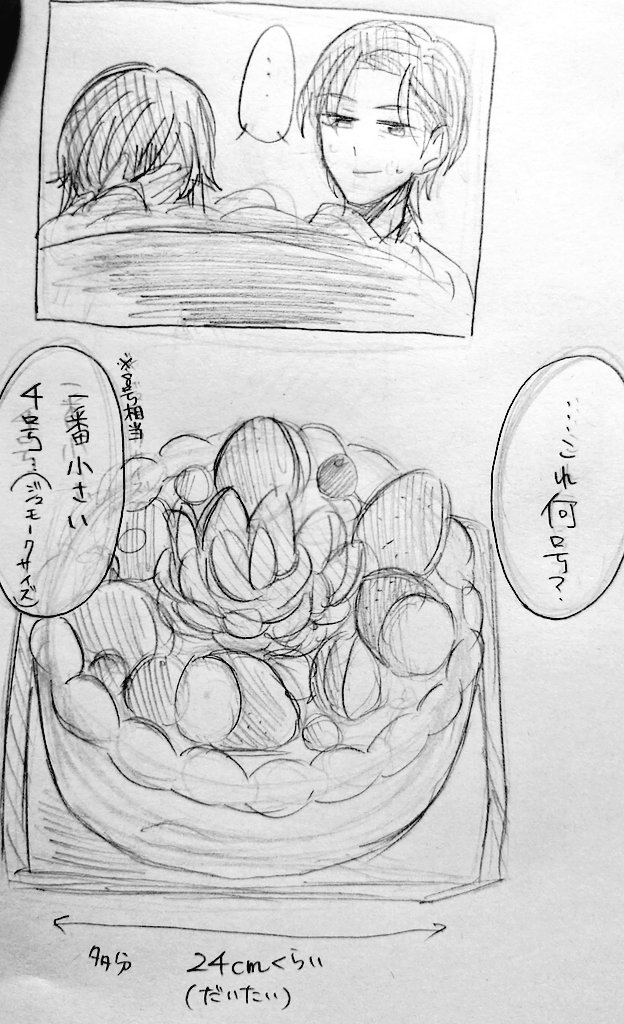 …
……これ何号?
※8号相当
一番小さい
4号…(ジョモークサイズ)
多分 24cmくらい
(だいたい)